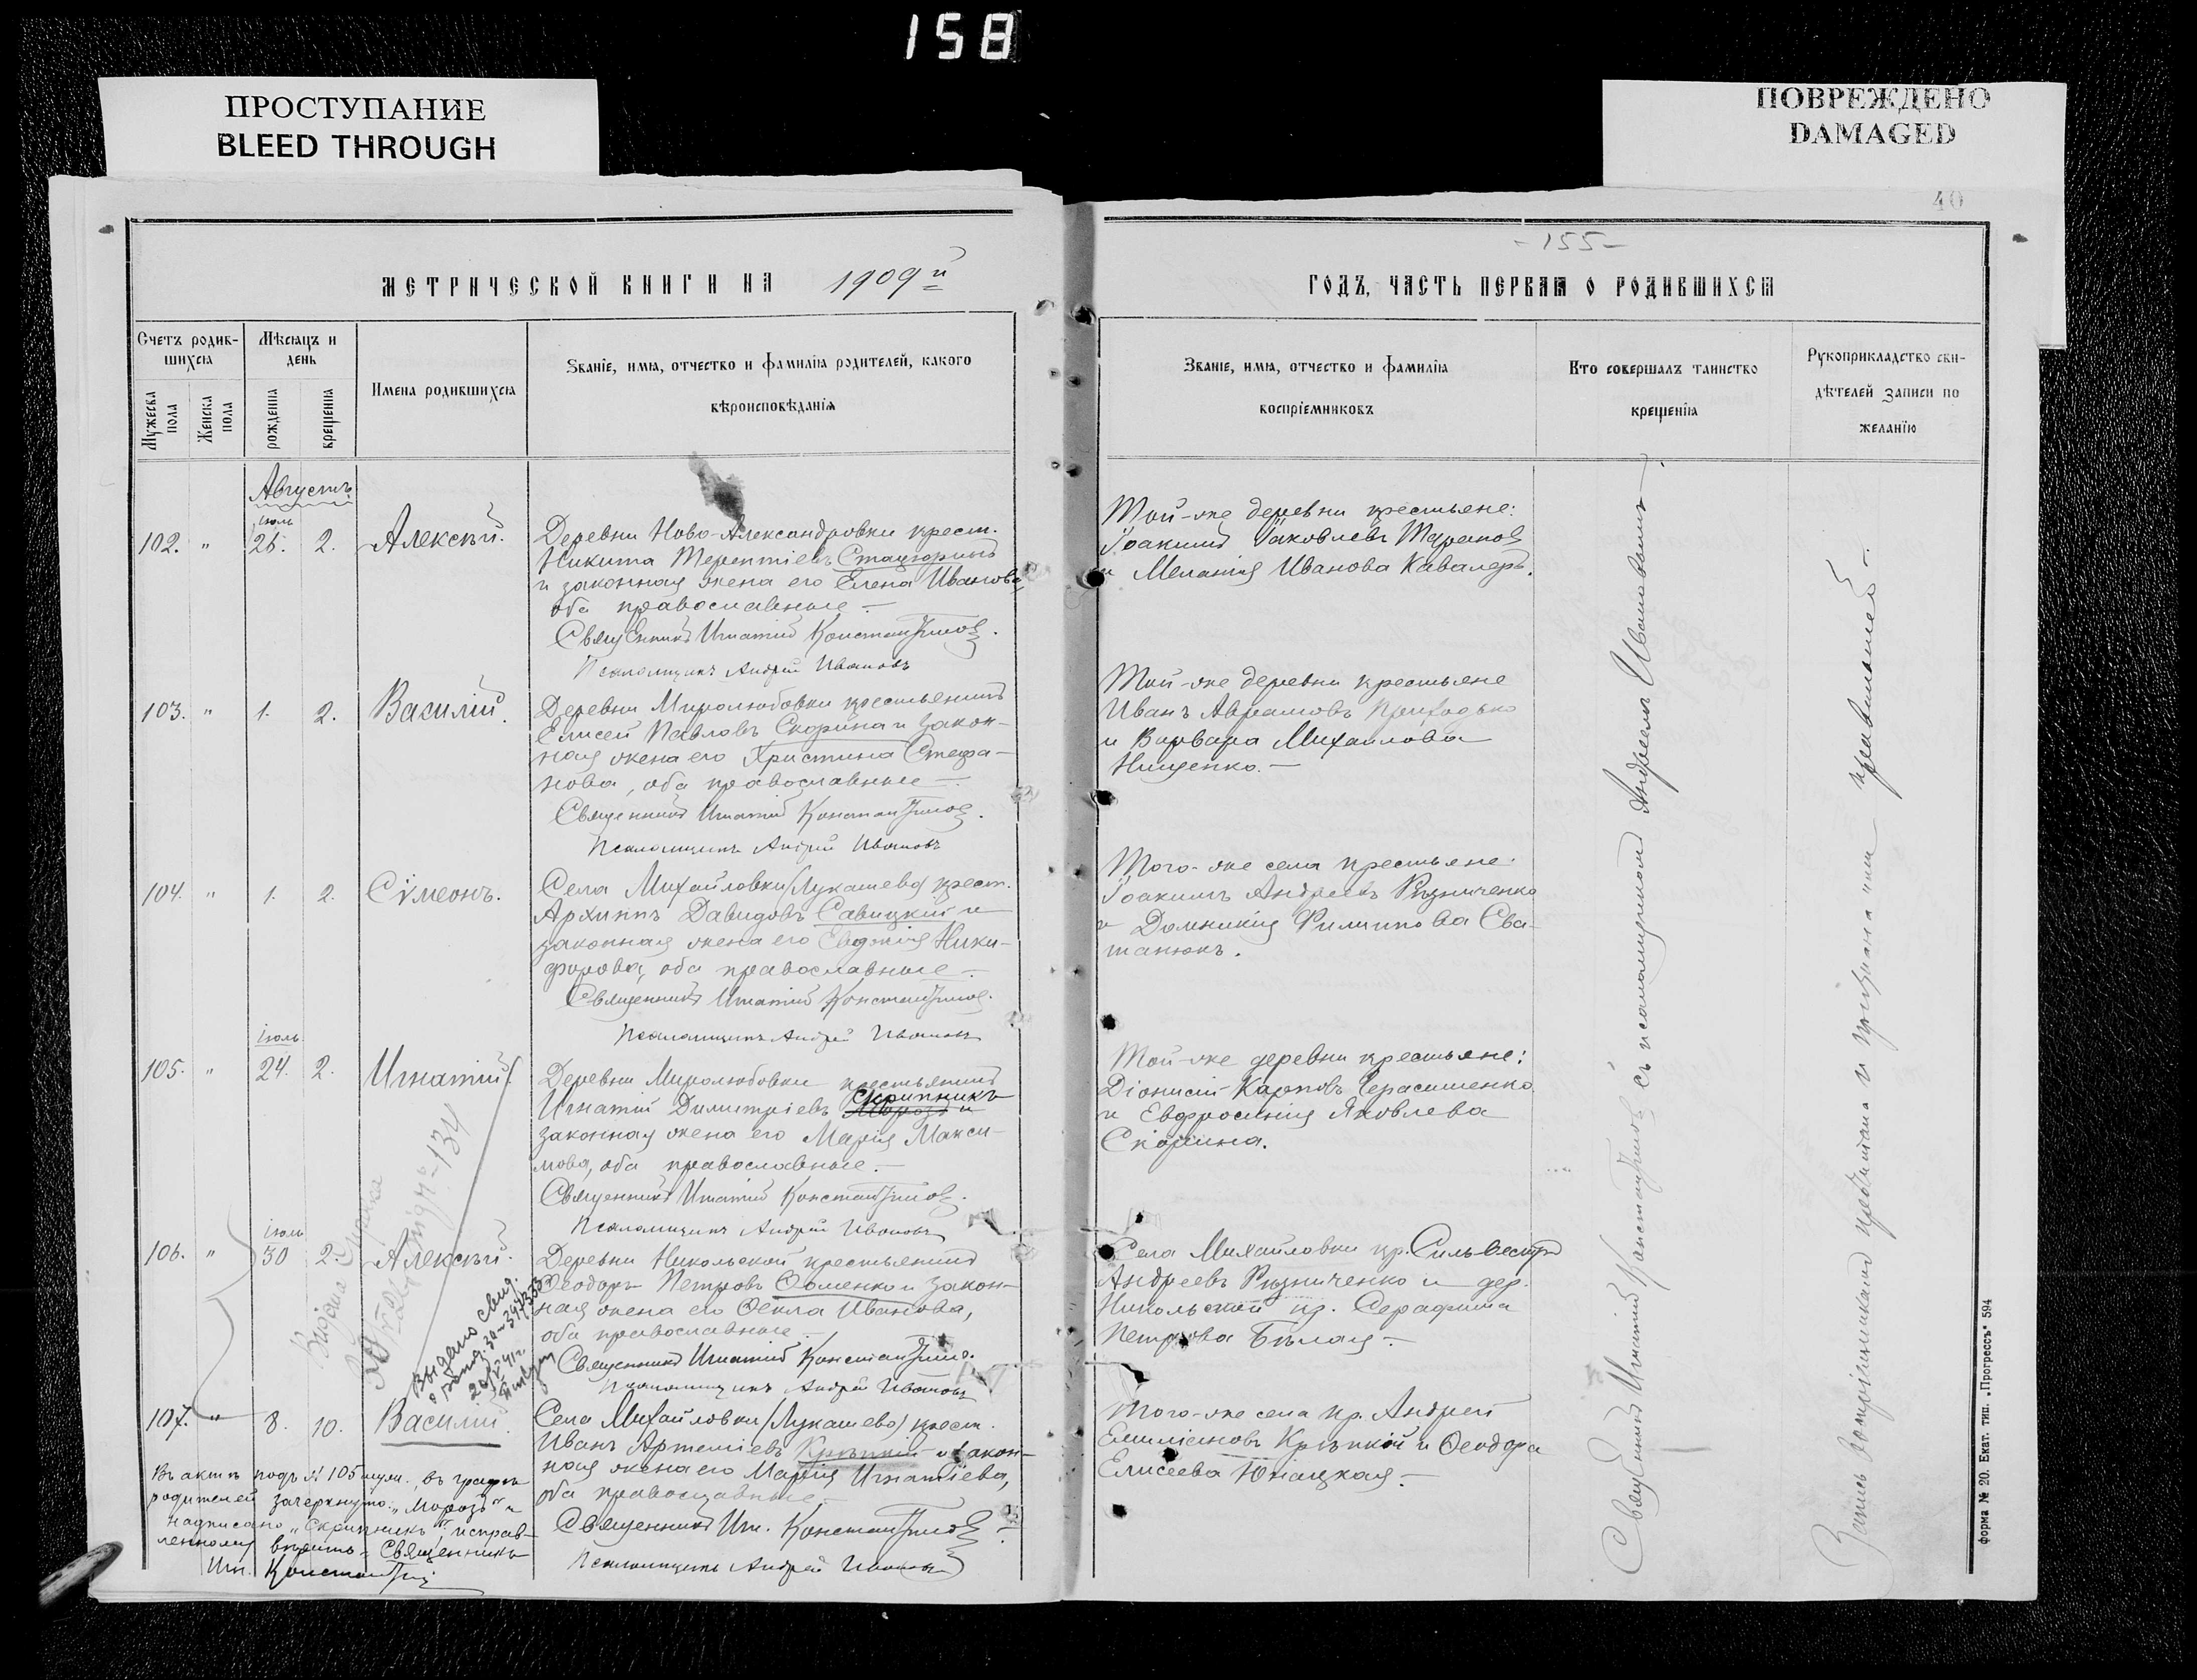 158
ПРОСТУПАНИЕ
BLEED THROUGH
ПОВРЕЖДЕНО
DAMAGED
МЕТРИЧЕСКОЙ КНИГИ НА 1909й
Счетъ родившихся
Мужеска пола
Женска пола
Мѣсяцъ и день
рожденія
крещенія
Имена родившихся
Званіе, имя, отчество и фамилія родителей, какого
вѣроисповѣданія
Августъ
102. " іюль 26. 2. Алексѣй.
Деревни Ново-Александровки крест.
Никита Терентіевъ
и законная жена его Елена Иванова,
оба православные —
Священникъ Игнатій Константиновъ.
Псаломщикъ Андрей Ивановъ
103. " 1. 2. Василій.
Деревни Миролюбовки крестьянинъ
Елисей Павловъ Скорина и закон-
ная жена его Христина Стефа-
нова, оба православные —
Священникъ Игнатій Константиновъ.
Псаломщикъ Андрей Ивановъ
104. " 1. 2. Сѵмеонъ.
Села Михайловки (Лукашево) крест.
Архиппъ Давидовъ Савицкій и
законная жена его Евдокія Ники-
форова, оба православные —
Священникъ Игнатій Константиновъ.
Псаломщикъ Андрей Ивановъ
105. " іюль 24. 2. Игнатій.
Деревни Миролюбовки крестьянинъ
Игнатій Димитріевъ Морозъ Скрипникъ и
законная жена его Марія Макси-
мова, оба православные. —
Священникъ Игнатій Константиновъ.
Псаломщикъ Андрей Ивановъ
106. " іюль 30 2. Алексѣй.
Деревни Никольской крестьянинъ
Ѳеодоръ Петровъ Ѳоменко и закон-
ная жена его Ѳекла Иванова,
оба православные —
Священникъ Игнатій Константиновъ.
Псаломщикъ Андрей Ивановъ
Выдано свид.
107. " 8. 10. Василій.
Села Михайловки (Лукашево) крест.
Иванъ Артеміевъ Крѣпкій и закон-
ная жена его Марія Игнатіева,
оба православные.
Священникъ Игн. Константиновъ
Псаломщикъ Андрей Ивановъ
Въ актѣ подъ № 105 муж., въ графѣ
родителей зачеркнуто: „Морозъ" и
надписано „Скрипникъ", исправ-
ленному вѣрить. Священникъ
Игн. Константинов
40
- 155 -
ГОДЪ, ЧАСТЬ ПЕРВАЯ О РОДИВШИХСЯ
Званіе, имя, отчество и фамилія
воспріемниковъ
Кто совершалъ таинство
крещенія
Рукоприкладство сви-
дѣтелей записи по
желанію
Той-же деревни крестьяне:
Іоакимъ Іаковлевъ Тарановъ
и Меланія Иванова Кавалеръ.
Той-же деревни крестьяне
Иванъ Аврамовъ Приходько
и Варвара Михайлова
Нищенко. —
Того-же села крестьяне:
Іоакимъ Андреевъ Рѣзниченко
и Домникія Филиппова Сва-
танюкъ.
Той-же деревни крестьяне:
Діонисій Карповъ Герасименко
и Евфросинія Яковлева
Скорина.
Села Михайловки кр. Сильвестръ
Андреевъ Рѣзниченко и дер.
Никольской кр. Серафима
Петрова Бѣлая —
Того-же села кр. Андрей
Емиліановъ Крѣпкій и Ѳеодора
Елисеева Юнацкая —
Священникъ Игнатій Константиновъ съ псаломщикомъ Андреемъ Ивановымъ —
Запись воспріемниками прочитана и признана ими правильной —
форма № 20. Екат. тип. „Прогрессъ" 594